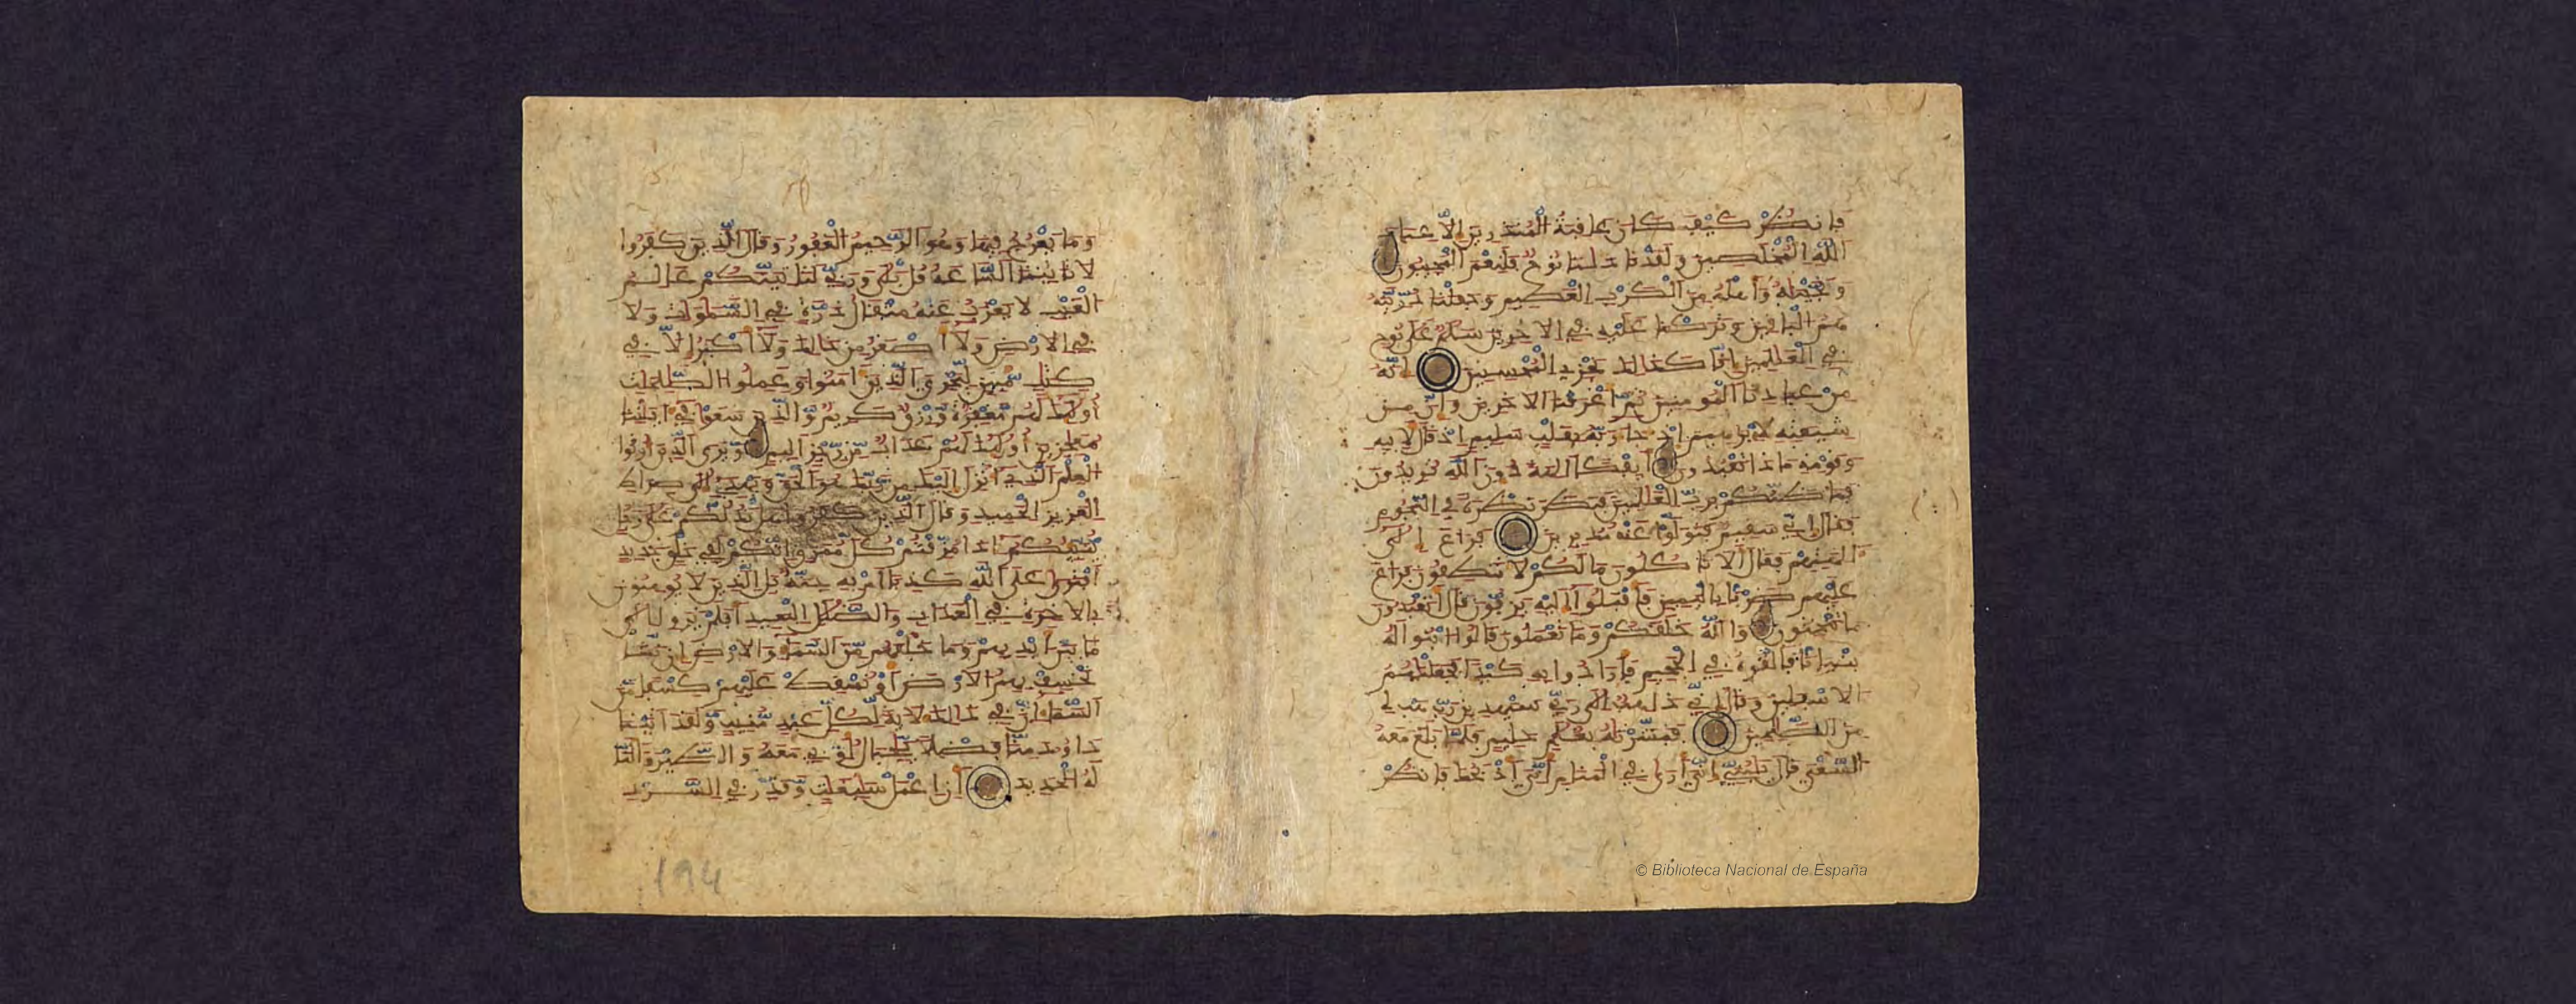 فانظر كيف كان عاقبة المنذرين إلا عباد
الله المخلصين ولقد نادينا نوح فلنعم المجيبون
ونجيناه وأهله من الكرب العظيم وجعلنا ذريته
هم الباقين وتركنا عليه في الاخرين سلام على نوح
في العالمين إنا كذالك نجزي المحسنين إنه
من عبادنا المومنين ثم أغرقنا الاخرين وإن من
شيعته لإبراهيم إذ جاء ربه بقلب سليم إذ قال لابيه
وقومه ماذا تعبدون أيفكا الهة دون الله تريدون
فما ظنكم برب العالمين فنظر نظرة في النجوم
فقال إني سقيم فتولوا عنه مدبرين فراغ إلى
الهتهم فقال ألا تاكلون ما لكم لا تنطقون فراغ
عليهم ضربا باليمين فأقبلوا إليه يزفون قال أتعبدون
ما تنحتون والله خلقكم وما تعملون قالوا ابنوا له
بنيانا فألقوه في الجحيم فأرادوا به كيدا فجعلناهم
الاسفلين وقال إني ذاهب إلى ربي سيهدين رب هب لي
من الصالحين فبشرناه بغلام حليم فلما بلغ معه
السعي قال يابني إني أرى في المنام أني أذبحك فانظر
وما يعرج فيها وهو الرحيم الغفور وقال الذين كفروا
لا تاتينا الساعة قل بلى وربي لتاتينكم عالم
الغيب لا يعزب عنه مثقال ذرة في السماوات ولا
في الارض ولا أصغر من ذالك ولا أكبر إلا في
كتاب مبين ليجزي الذين امنوا وعملوا الصالحات
أولئك لهم مغفرة ورزق كريم والذين سعوا في اياتنا
معاجزين أولئك لهم عذاب من رجز أليم ويرى الذين أوتوا
العلم الذي أنزل إليك من ربك هو الحق ويهدي إلى صراط
العزيز الحميد وقال الذين كفروا هل ندلكم على رجل
ينبئكم إذا مزقتم كل ممزق إنكم لفي خلق جديد
أفترى على الله كذبا أم به جنة بل الذين لا يومنون
بالاخرة في العذاب والضلال البعيد أفلم يروا إلى
ما بين أيديهم وما خلفهم من السماء والارض إن نشأ
نخسف بهم الارض أو نسقط عليهم كسفا من
السماء إن في ذالك لاية لكل عبد منيب ولقد اتينا
داوود منا فضلا ياجبال أوبي معه والطير وألنا
له الحديد أن اعمل سابغات وقدر في السرد
194
© Biblioteca Nacional de España